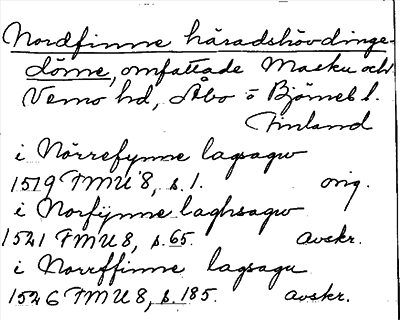 Nordfinne häradshövdinge-
döme, omfattade Masku och
Vemo hd, Åbo o Björneb l.
Finland
i Nörrefynne lagsagw
1519 FMU 8, s. 1. orig.
i Norfynne laghsagw
1521 FMU 8, s. 65. avskr.
i Norrffinne lagsagu
1526 FMU 8, s. 185. avskr.